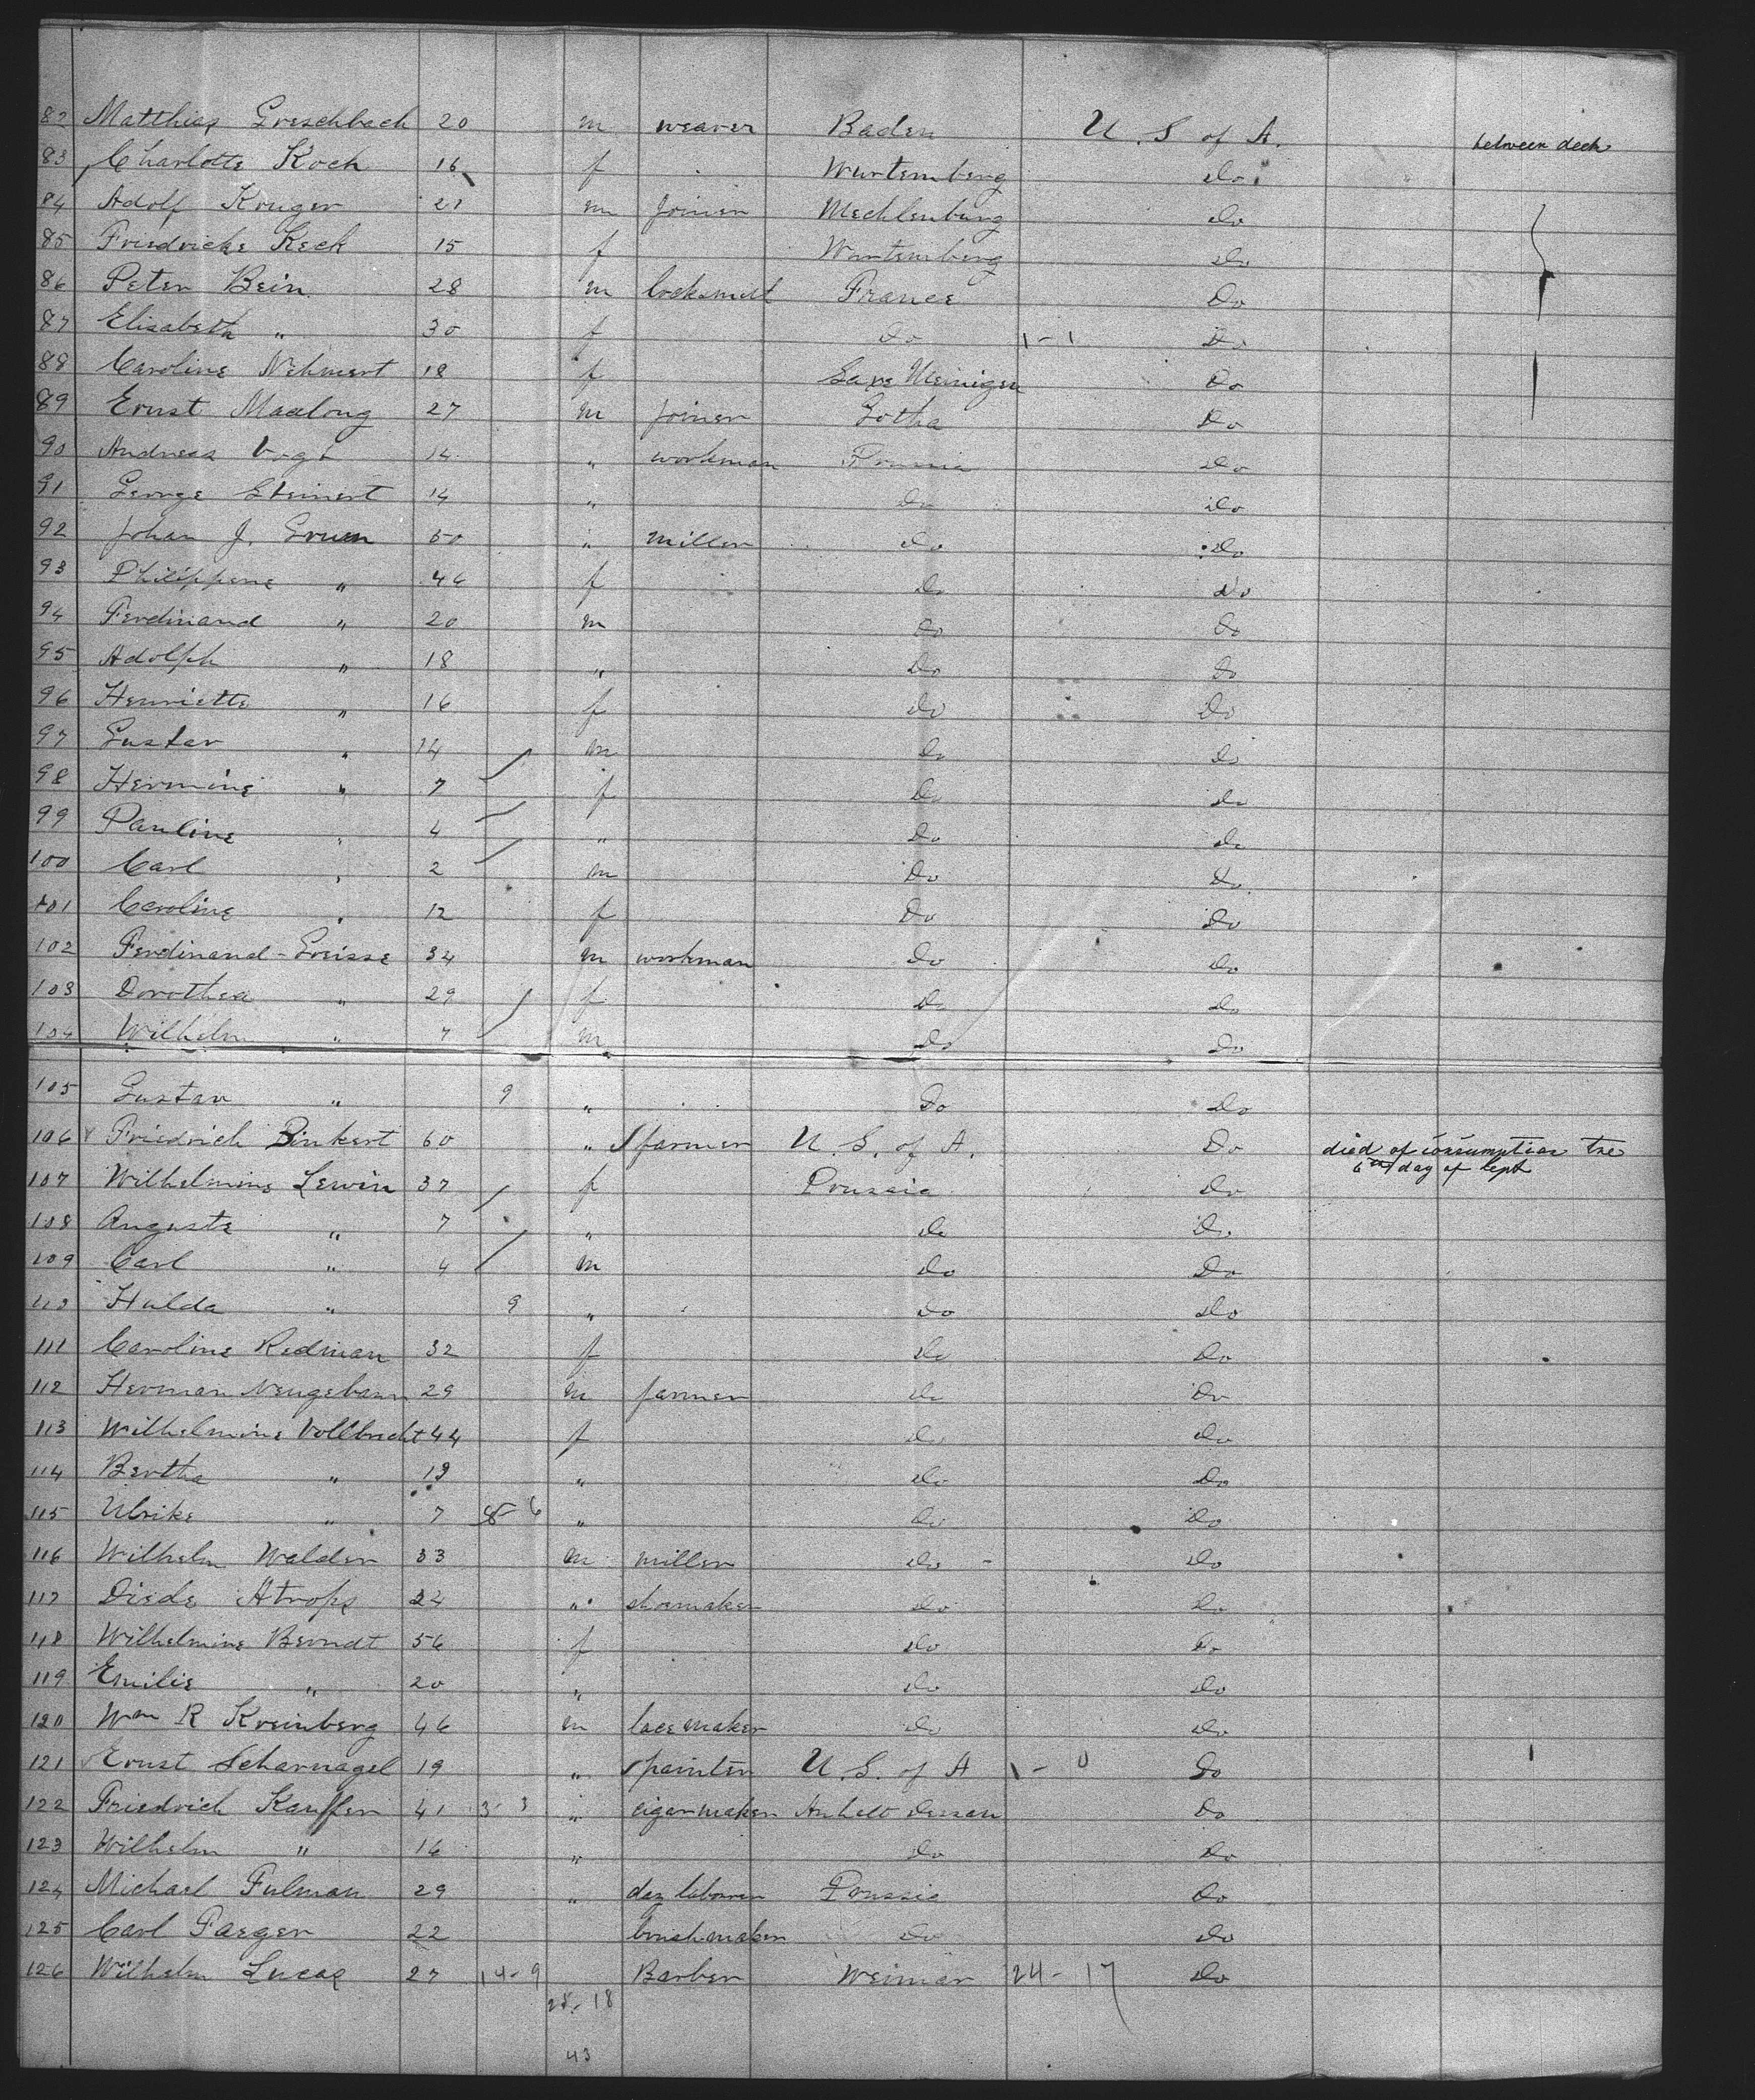 82 Matthias Greschbach 20 m weaver Baden U. S of A. between deck
83 Charlotte Koch 16 f Wurtemberg Do
84 Adolf Kruger 21 m joiner Mechlenburg Do
85 Friedricke Keck 15 f Wurtemberg Do
86 Peter Bein 28 m locksmidt France Do
87 Elisabeth " 30 f Do 1-1 Do
88 Caroline Nehmert 18 f Saxe Meinigen Do
89 Ernst Maalong 27 m joiner Gotha Do
90 Andreas Vogt 14 " workman Prussia Do
91 George Steinert 14 " Do Do
92 Johan J. Gruen 50 " miller Do Do
93 Philippine " 46 f Do Do
94 Ferdinand " 20 m Do Do
95 Adolph " 18 " Do Do
96 Henriette " 16 f Do Do
97 Gustav " 14 m Do Do
98 Hermine " 7 f Do Do
99 Pauline " 4 " Do Do
100 Carl " 2 m Do Do
101 Caroline " 12 f Do Do
102 Ferdinand - Greisse 34 m workman Do Do
103 Dorothea " 29 f Do Do
104 Wilhelm " 7 m Do Do
105 Gustav " 9 " Do Do
106 Friedrich Binkert 60 " farmer U. S. of A. Do died of consumption the
6th day of Sept
107 Wilhelmine Lewin 37 f Prussia Do
108 Auguste " 7 " Do Do
109 Carl " 4 m Do Do
110 Hulda " 9 " Do Do
111 Caroline Redman 32 f Do Do
112 Herman Neugebaur 29 m farmer Do Do
113 Wilhelmine Vollbrecht 44 f Do Do
114 Bertha " 19 " Do Do
115 Ulrike " 7 6 " Do Do
116 Wilhelm Walder 33 m miller Do Do
117 Diede Atrops 24 " shomaker Do Do
118 Wilhelmine Berndt 56 f Do Do
119 Emilie " 20 " Do Do
120 Wm R Kreinberg 46 m lacemaker Do Do
121 Ernst Scharnagel 19 " painter U. S. of A 1-0 Do
122 Friedrich Kauffer 41 3-3 " cigarmaker Anhalt Dessau Do
123 Wilhelm " 16 " Do Do
124 Michael Fulman 29 " day laborer Prussia Do
125 Carl Faeger 22 brushmaker Do Do
126 Wilhelm Lucas 27 14-9 Barber Weimar 24-17 Do
25-18
43